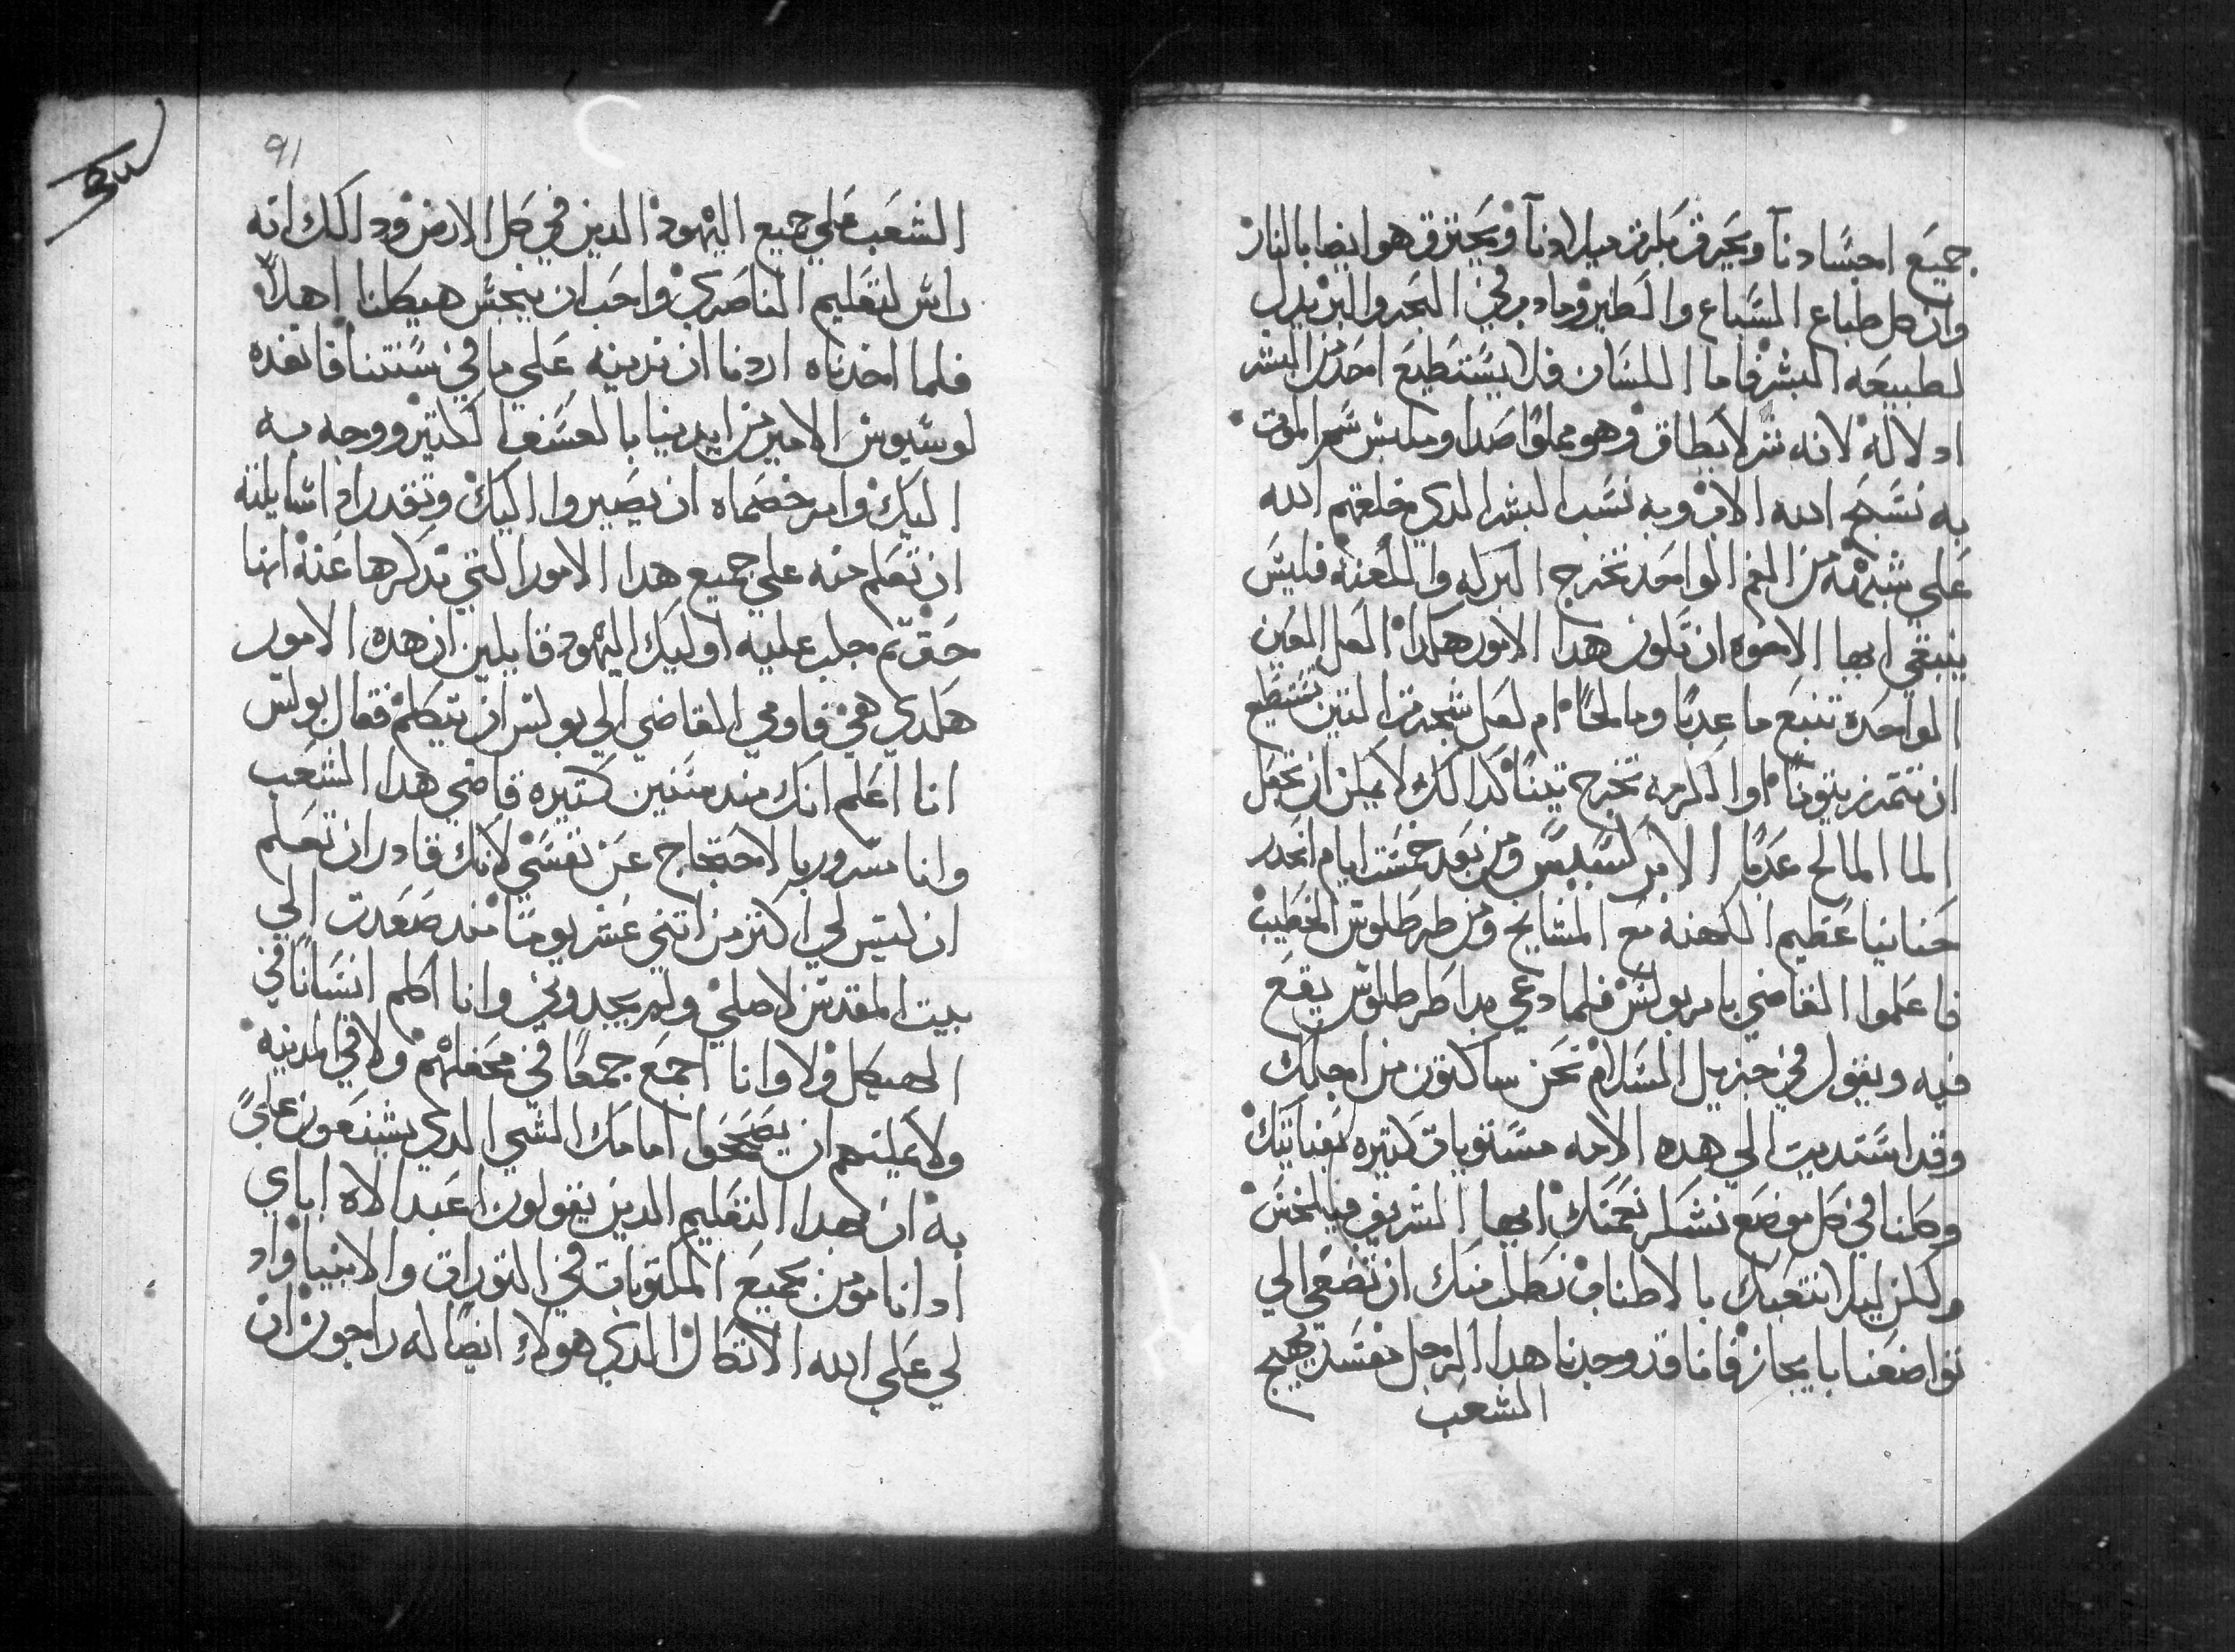 جميع اجسادنا ويحرق بكرة ميلادنا ويحترق هو ايضا بالنار
وان كل طباع السباع والطير وما دب في البحر والبر يدل
لطبيعه البشر فاما اللسان فلا يستطيع احد من البشر
ادلاله لانه شر لا يطاق وهو مملوا صدا وملبس سم الموت
به نسبح الله الاب وبه نسب البشر الدي خلقهم الله
علي شبهه من الفم الواحد تخرج البركه واللعنه فليس
ينبغي ايها الاخوه ان تكون هدا الامور هكدا لعل العين
الواحده تنبع ما عدبا وما مالحا ام لعل شجره التين تستطيع
ان تتمر زيتونا او الكرمه تخرج تينا كدالك لا يمكن ان تجعل
الما المالح عدبا الابركسيس ومن بعد خمسه ايام انحدر
حنانيا عظيم الكهنه مع المشايخ ومن طرطلوس الخطيب
فاعلموا القاضي بامر بولس فلما دعي بدا طرطلوس يقع
فيه ويقول في جزيل السلام نحن ساكنون من اجلك
وقد استديت الي هده الامه مستويات كتيره بعنايتك
وكلنا في كل موضع نشكر نعمتك ايها الشريف فيلكس
ولكن ليلا نتعبك بالاطناب نطلب منك ان تصغي الي
تواضعنا بايجاز فانا قد وجدنا هدا الرجل مفسد يهيج
الشعب
91
الشعب علي جميع اليهود الدين في كل الارض ودالك انه
راس لتعليم الناصري واحب ان ينجس هيكلنا اهلا
فلما اخدناه اردنا ان ندينه علي ما في سنتنا فانقده
لوسيوس الامير من ايدينا بالعسف الكتير ووجه به
اليك وامر خصماه ان يصيروا اليك وتقدر ادا سايلته
ان تعلم منه علي جميع هدا الامور التي تدكرها عنه انها
حق تم جلب عليه اوليك اليهود قايلين ان هده الامور
هكدي هي فاومي القاضي الي بولس ان يتكلم فقال بولس
انا اعلم انك مند سنين كتيره قاضي هدا الشعب
وانا مسرور بالاحتجاج عن نفسي لانك قادر ان تعلم
ان ليس لي اكتر من اتني عشر يوما مند صعدت الي
بيت المقدس لاصلي ولم يجدوني وانا اكلم انسانا في
الهيكل ولا وانا اجمع جمعا في محفلهم ولا في المدينه
ولا يمكنهم ان يصححوا امامك الشي الدي يشنعون علي
به ان بهدا التعليم الدين يقولون اعبد الاه اباي
اد انا مومن بجميع المكتوبات في التوراة والانبيا واد
لي علي الله الاتكال الدي هولاء ايضا له راجون ان